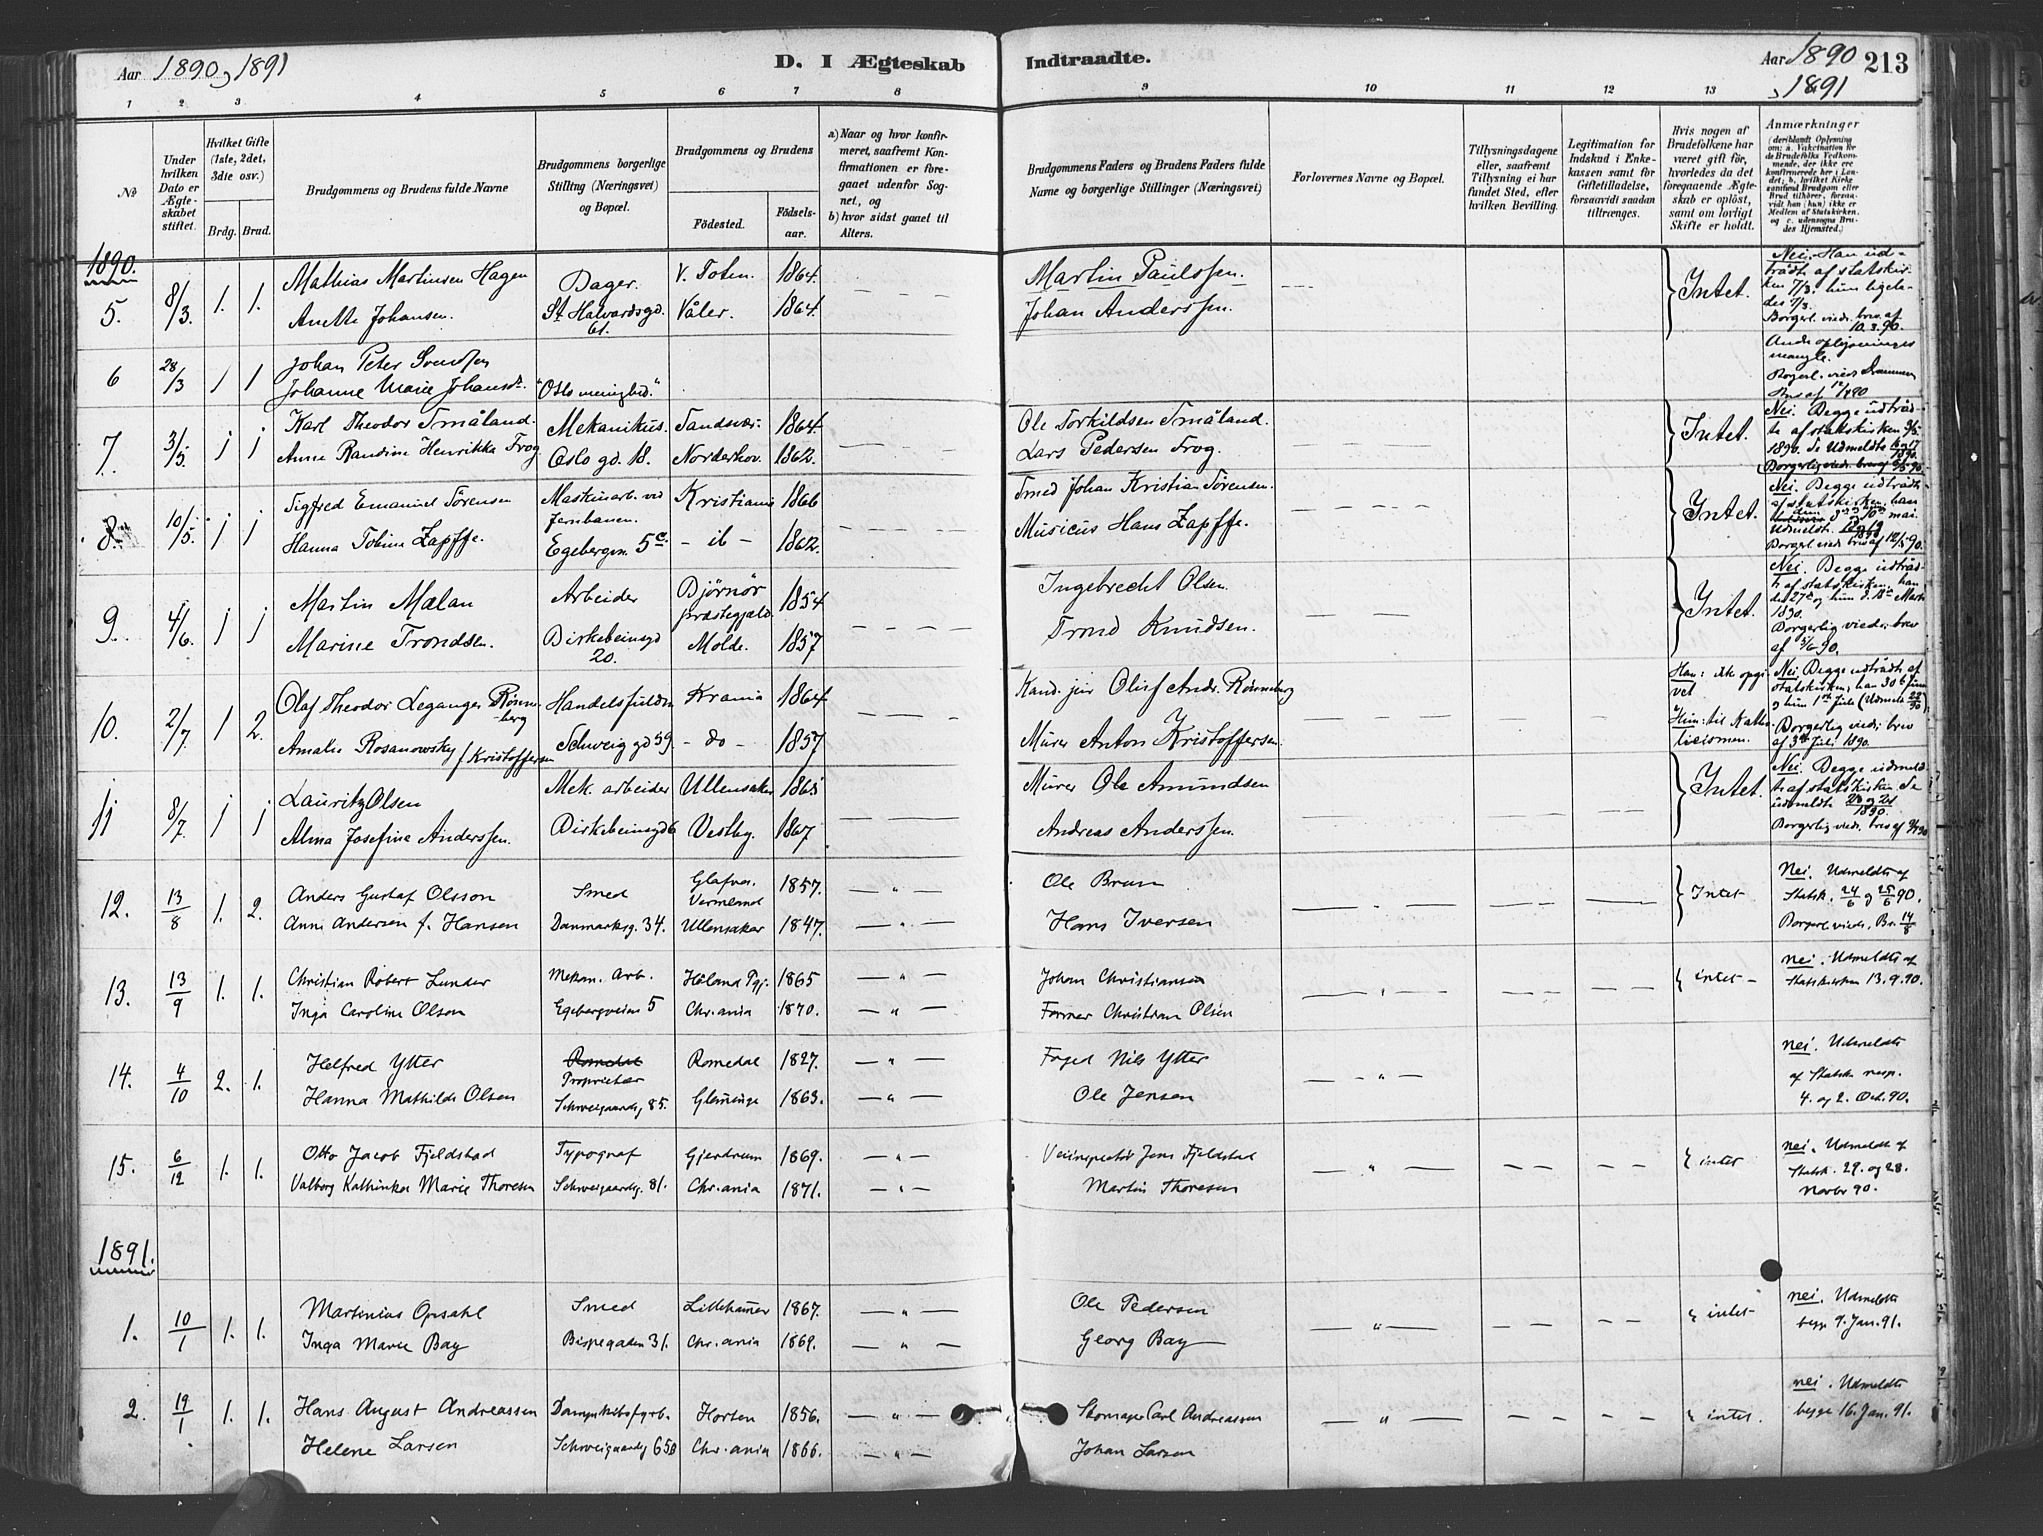 Aar 1890 og 1891
D. I Ægteskab Indtraadte.
Aar 1890 213
og 1891
1 2 3 4 5 6 7 8 9 10 11 12 13
No
Under hvilken Dato er Ægteskabet stiftet.
Hvilket Gifte (1ste, 2det, 3dte osv.)
Brdg. Brud.
Brudgommens og Brudens fulde Navne
Brudgommens borgerlige Stilling (Næringsvei) og Bopæl.
Brudgommens og Brudens
Fødested.
Fødselsaar.
a) Naar og hvor konfirmeret, saafremt Konfirmationen er foregaaet udenfor Sognet, og
b) hvor sidst gaaet til Alters.
Brudgommens Faders og Brudens Faders fulde Navne og borgerlige Stillinger (Næringsvei)
Forlovernes Navne og Bopæl.
Tillysningsdagene eller, saafremt Tillysning ei har fundet Sted, efter hvilken Bevilling.
Legitimation for Indskud i Enkekassen samt for Giftetilladelse, forsaavidt saadan tiltrænges.
Hvis nogen af Brudefolkene har været gift før, hvorledes da det foregaaende Ægteskab er opløst, samt om lovligt Skifte er holdt.
Anmærkninger
1890.
5. 8/3. 1. 1. Mathias Martinsen Hagen Bager. V. Toten. 1864. Martin Paulssen. Intet. Nei. Han udtrådt af statskirken 7/3. hun ligeledes 7/3.
Anette Johansen. St. Halvardsgd. 61. Våler. 1864. Johan Anderssen. Borgerl. viede. brev af 10.3.90.
6 28/3 1 1 Johan Peter Svendsen Andre oplysninger mangle.
Johanne Marie Johansdr. "Oslo menighed." Borgerl. viede Drammen
7. 3/5. 1 1 Karl Theodor Småland Mekanikus. Sandsvær. 1864. Ole Torkildsen Småland. Intet. Nei. Begge udtrådte af statskirken
Anne Randine Henrikka Frog Oslo gd. 18. Norderhov. 1862. Lars Pedersen Frog. 1890.
8. 10/5. 1 1 Sigfred Emanuel Sørensen Maskinarb. ved Jernbanen. Kristiania 1866 Smed Johan Kristian Sørensen. Intet. Nei. Begge udtrådt af statskirken.
Hanna Tobine Zapffe. Egebergsv. 5c. - ib - 1862. Musicus Hans Zapffe. Borgerl. viede brev af 12/5 90.
9. 4/6. 1 1 Martin Mælan Arbeider Bjørnør præstegjeld. 1854 Ingebrecht Olsen. Intet. Nei. Begge udtrådt af statskirken, han den 27de og hun d. 18de Marts 1890.
Marine Trondsen. Birkebeinergd 20. Molde. 1857 Trond Knudsen. Borgerlig viede; brev af 5/6 90.
10. 2/7. 1 2. Olaf Theodor Leganger Rønneberg Handelsfuldm Krania 1864 Kand. jur Oluf Andr. Rønneberg Han: ikk opgivet Nei. Begge udtrådt af statskirken, han 30te Juni og hun 1ste Juli
Amalie Rosanowsky f. Kristoffersen Schweig gd 59. - do - 1857 Murer Anton Kristoffersen. Hun: til Katholicismen. Borgerlig viede; brev af 3die Juli 1890.
11 8/7. 1 1 Lauritz Olsen Mek. arbeider Ullensaker 1865 Murer Ole Amundsen Intet. Nei. Begge udmeldt af statskirken.
Alma Josefine Anderssen. Birkebeinergd 6 Vestby. 1867 Andreas Anderssen. Borgerlig viede, brev af 9/7 90
12. 13/8 1. 2. Anders Gustaf Olsson Smed Glafva. Vermland 1857. Ole Brun Intet Nei. Udmeldt af Statsk. 24/6 og 25/6 90.
Anne Andersen f. Hansen Danmarksg. 34. Ullensaker 1847. Hans Iversen Borgerl. viede. Br. 14/8
13. 13/9 1. 1. Christian Robert Lunder Mekan. Arb. Høland Pgj. 1865 Johan Christiansen intet - nei. Udmeldt af Statskirken 13.9.90.
Inga Caroline Olsen Egebergveien 5 Chr.ania 1870. Former Christian Olsen
14. 4/10 2. 1. Helfred Ytter Romedal Proprietær Romedal 1827. Foged Nils Ytter nei. Udmeldt af Statsk resp. 4. og 2. Oct. 90.
Hanna Mathilde Olsen Schweigaardsg 85. Glemminge 1863. Ole Jensen
15. 6/12 1. 1. Otto Jacob Fjeldstad Typograf Gjerdrum 1869. Veiinspektør Jens Fjeldstad intet nei. Udmeldt af Statsk. 29. og 28. Novbr 90.
Valborg Kathinka Marie Thoresen Schweigaardsg. 81. Chr.ania 1871. Martin Thoresen
1891.
1. 10/1 1. 1. Martinius Opsahl Smed Lillehamer 1867. Ole Pedersen intet nei. Udmeldt begge 9. Jan. 91.
Inga Marie Bay Bispegaden 31. Chr.ania 1869. Georg Bay
2. 19/1 1. 1. Hans August Andreassen Dampskibsfyrb. Horten 1856. Skomager Carl Andreassen intet. nei. Udmeldt begge 16. Jan. 91.
Helene Larsen Schweigaardsg 65b Chr.ania 1866. Johan Larsen